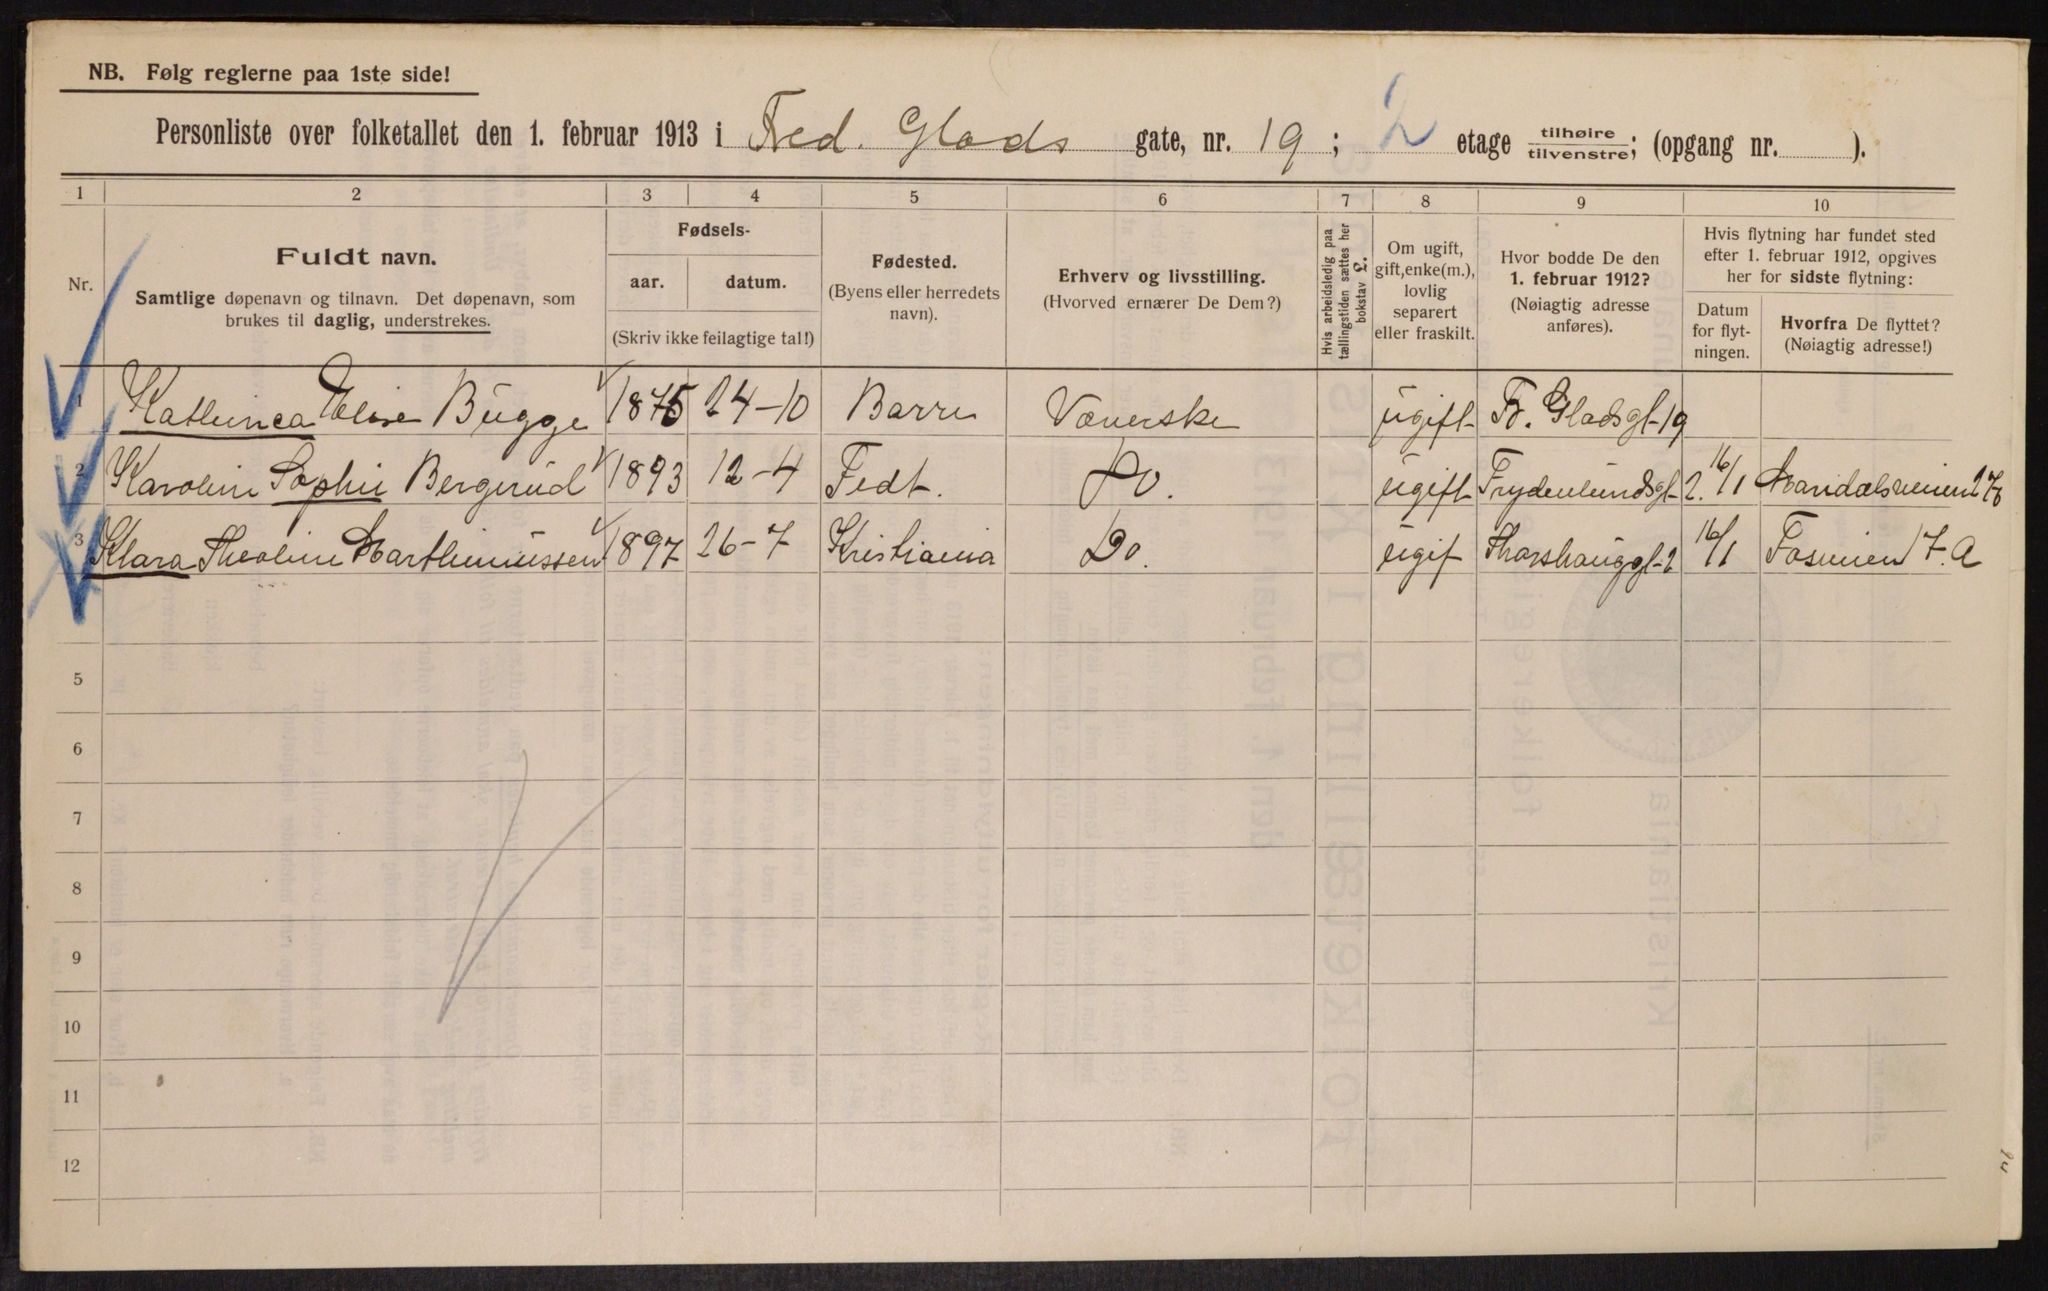 NB. Følg reglerne paa 1ste side!
Personliste over folketallet den 1. februar 1913 i Fred. Glads gate, nr. 19; 2 etage tilhøire/tilvenstre; (opgang nr. ).
1 2 3 4 5 6 7 8 9 10
Nr.
Fuldt navn.
Samtlige døpenavn og tilnavn. Det døpenavn, som
brukes til daglig, understrekes.
Fødsels-
aar. datum.
(Skriv ikke feilagtige tal!)
Fødested.
(Byens eller herredets
navn).
Erhverv og livsstilling.
(Hvorved ernærer De Dem?)
Hvis arbeidsledig paa
tællingstiden sættes her
bokstav L.
Om ugift,
gift, enke(m.),
lovlig
separert
eller fraskilt.
Hvor bodde De den
1. februar 1912?
(Nøiagtig adresse
anføres).
Hvis flytning har fundet sted
efter 1. februar 1912, opgives
her for sidste flytning:
Datum
for flyt-
ningen.
Hvorfra De flyttet?
(Nøiagtig adresse!)
1 Bugge 1875 24-10 Væverske ugift Fr. Gladsgt-19
2 Karolin Sophie Bergerud 1893 12-4 Fedt. Do. ugift Frydenlundsgt-2. 16/1
3 Klara Theoline Marthinussen 1897 26-7 Kristiania Do. ugif Thorshauggt-2 16/1 7.A
5
6
7
8
9
10
11
12